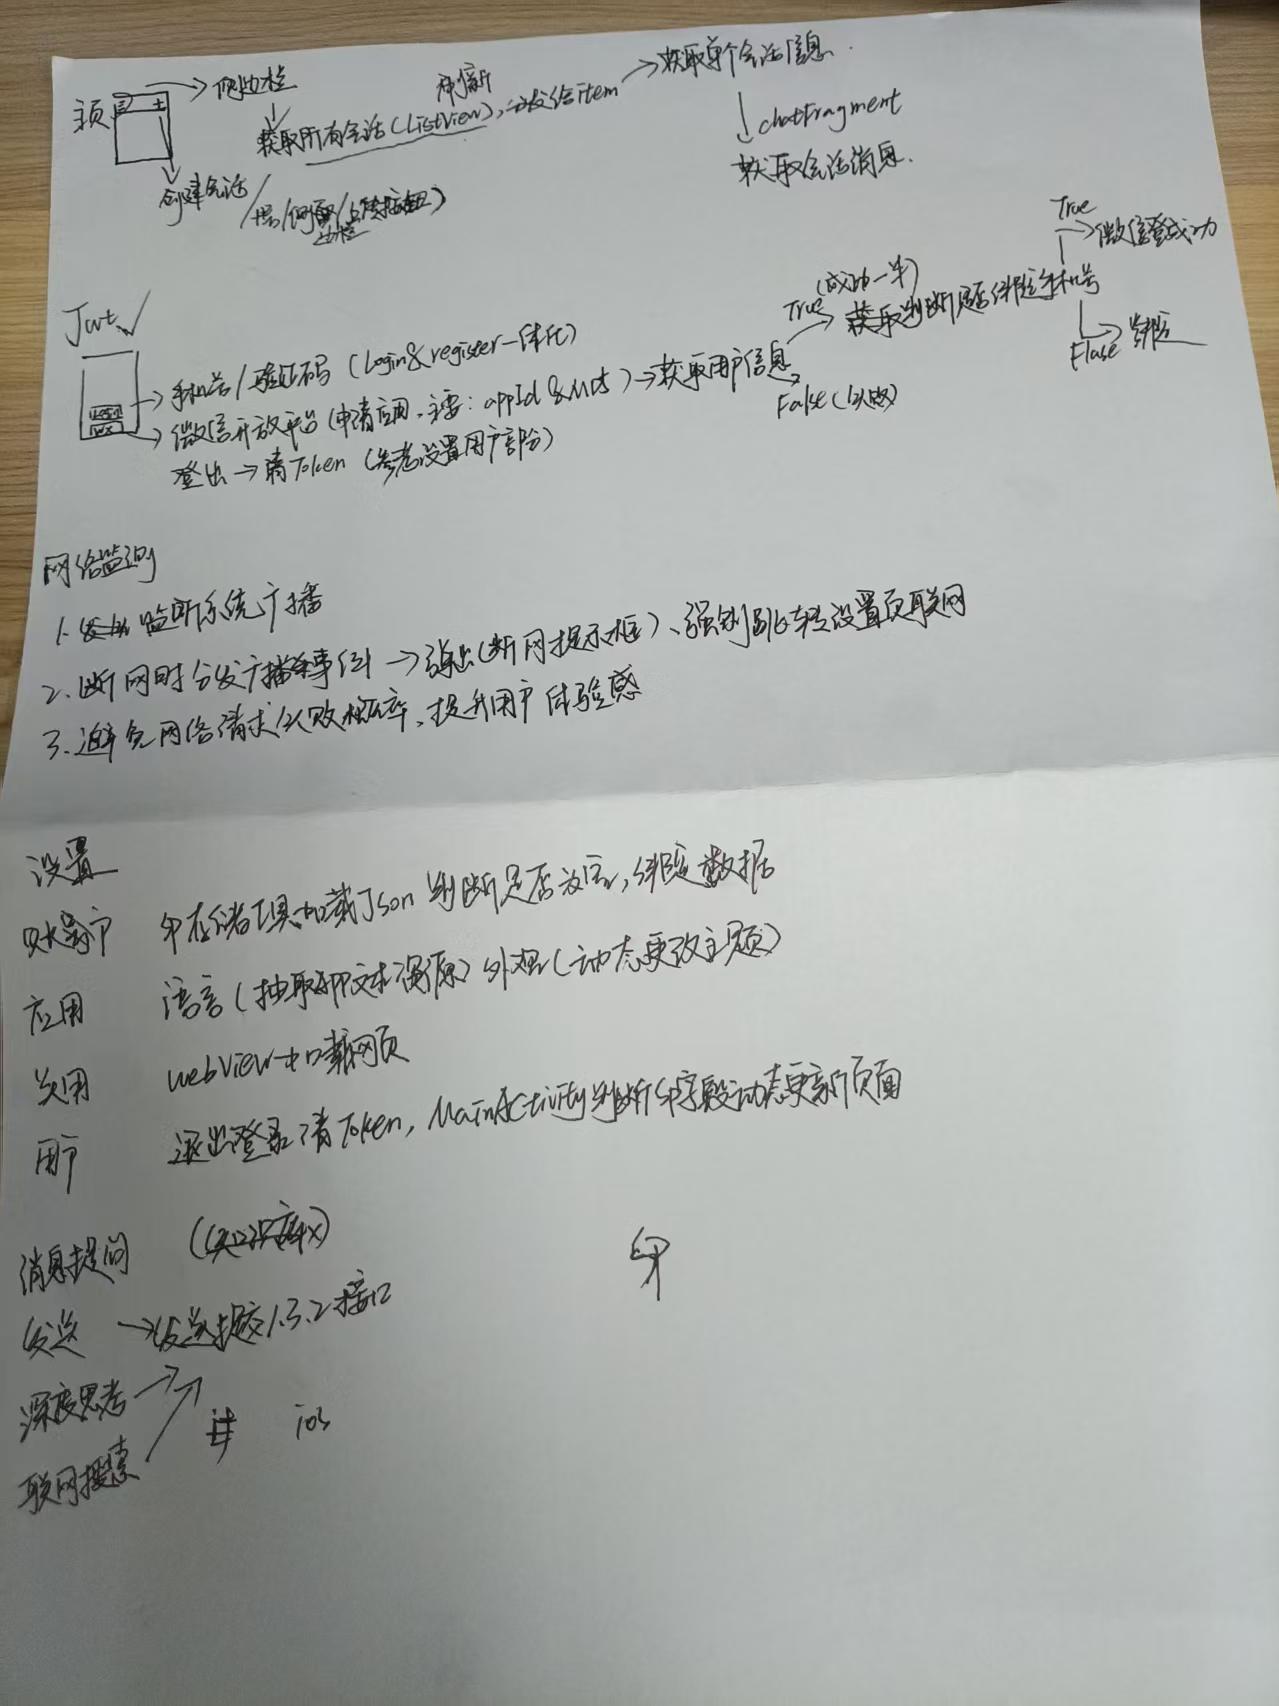 主页 + → 侧边栏
刷新
获取所有会话(ListView),分发给item → 获取单个会话信息.
↓ chatFragment
获取会话消息.
创建会话
Jwt
手机号/验证码 (login&register一体化)
微信开放平台 (申请应用,主要: appId & ) → 获取用户信息
True (成功一半) → 获取判断是否绑定手机号
True → 微信登成功
Flase → 绑定
False (失败)
登出 → 清Token (参考设置用户部分)
网络监测
1. 监听系统广播
2. 断网时分发广播事例 → 弹出(断网提示框)、强制跳转设置页联网
3. 避免网络请求失败概率、提升用户体验感
设置
账户 存储工具加载Json 判断是否为空, 绑定数据
应用 语言(抽取文本资源) 外观(动态更改主题)
关用 WebView加载网页
用户 退出登录清Token, MainActivity判断字段动态更新页面
消息提问 (知识库x)
发送 → 发送提交1.3.2接口
深度思考 →
联网搜索
ios